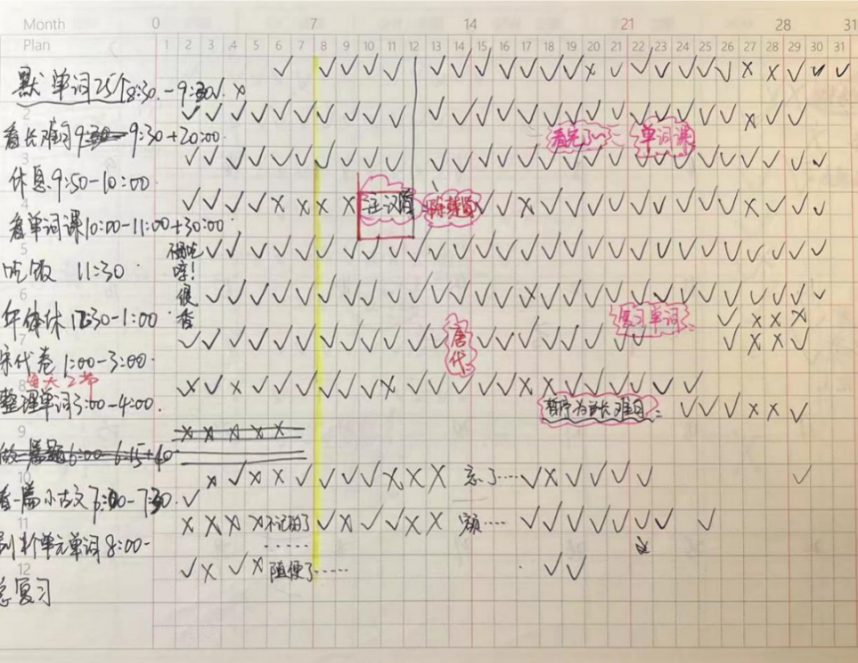 Month 0 7 14 21 28 31
Plan 1 2 3 4 5 6 7 8 9 10 11 12 13 14 15 16 17 18 19 20 21 22 23 24 25 26 27 28 29 30 31
默单词25个8:30-9:30
2
看长难句9:30+20:00
看完了~~ 单词课
3
休息9:50-10:00
4
看单词课10:00-11:00+30:00
5
吃饭 11:30
6
午休 12:30-1:00
复习单词
7
宋代卷 1:00-3:00
唐代
每天2节
8
整理单词3:00-4:00
暂停为长难句
9
10
看一篇小古文7:00-7:30
忘了……
11
单元单词8:00-
不记得了
额……
12
随便了……
总复习